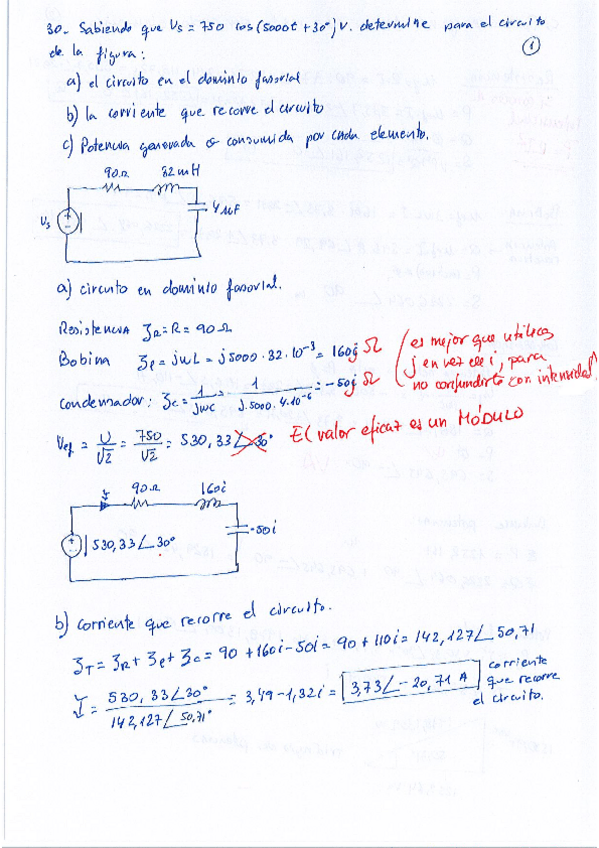 30.- Sabiendo que Us = 750 cos (5000t + 30°) V. determine para el circuito
de la figura:
1
a) el circuito en el dominio fasorial
b) la corriente que recorre el circuito
c) Potencia generada o consumida por cada elemento.
90Ω 32mH
4μF
Us
a) circuito en dominio fasorial.
Resistencia Z_R = R = 90Ω
Bobina Z_L = jωL = j5000·32·10^-3 = 160j Ω
Condensador: Z_C = 1/jωC = 1/j·5000·4·10^-6 = -50j Ω
(es mejor que utilices
j en vez de i, para
no confundirte con intensidad)
Uef = U/√2 = 750/√2 = 530,33∠30°
El valor eficaz es un MÓDULO
I 90Ω 160i
-50i
530,33∠30°
b) corriente que recorre el circuito.
Z_T = Z_R + Z_L + Z_C = 90 + 160i - 50i = 90 + 110i = 142,127∠50,71
I = 530,33∠30° / 142,127∠50,71° = 3,49 - 1,32i = 3,73∠-20,71 A
corriente
que recorre
el circuito.